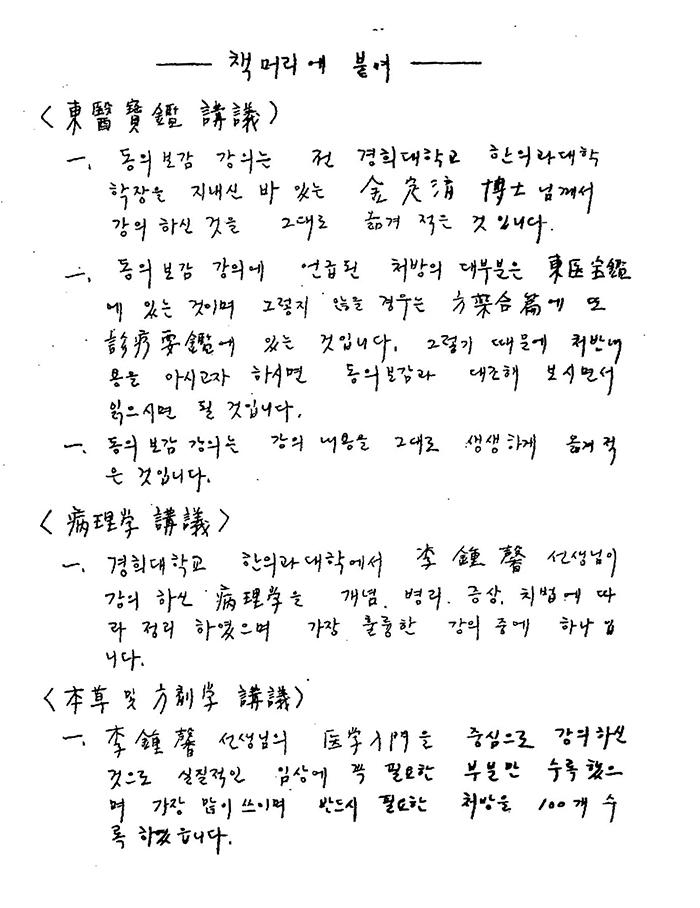 책머리에 붙여
〈東醫寶鑑 講議〉
一. 동의보감 강의는 전 경희대학교 한의과대학
학장을 지내신 바 있는 金定濟 博士님께서
강의 하신 것을 그대로 옮겨 적은 것 입니다.
一. 동의보감 강의에 언급된 처방의 대부분은 東医宝鑑
에 있는 것이며 그렇지 않을 경우는 方葯合篇에 또
診療要鑑에 있는 것입니다. 그렇기 때문에 처반내
용을 아시고자 하시면 동의보감과 대조해 보시면서
읽으시면 될 것입니다.
一. 동의보감 강의는 강의 내용을 그대로 생생하게 옮겨 적
은 것입니다.
〈病理学 講議〉
一. 경희대학교 한의과대학에서 李鍾馨 선생님이
강의 하신 病理学을 개념. 병리. 증상. 치법에 따
라 정리 하였으며 가장 훌륭한 강의 중에 하나 입
니다.
〈本草 및 方劑学 講議〉
一. 李鍾馨 선생님의 医学入門을 중심으로 강의하신
것으로 실질적인 임상에 꼭 필요한 부분만 수록했으
며 가장 많이 쓰이며 반드시 필요한 처방을 100개 수
록 하였습니다.